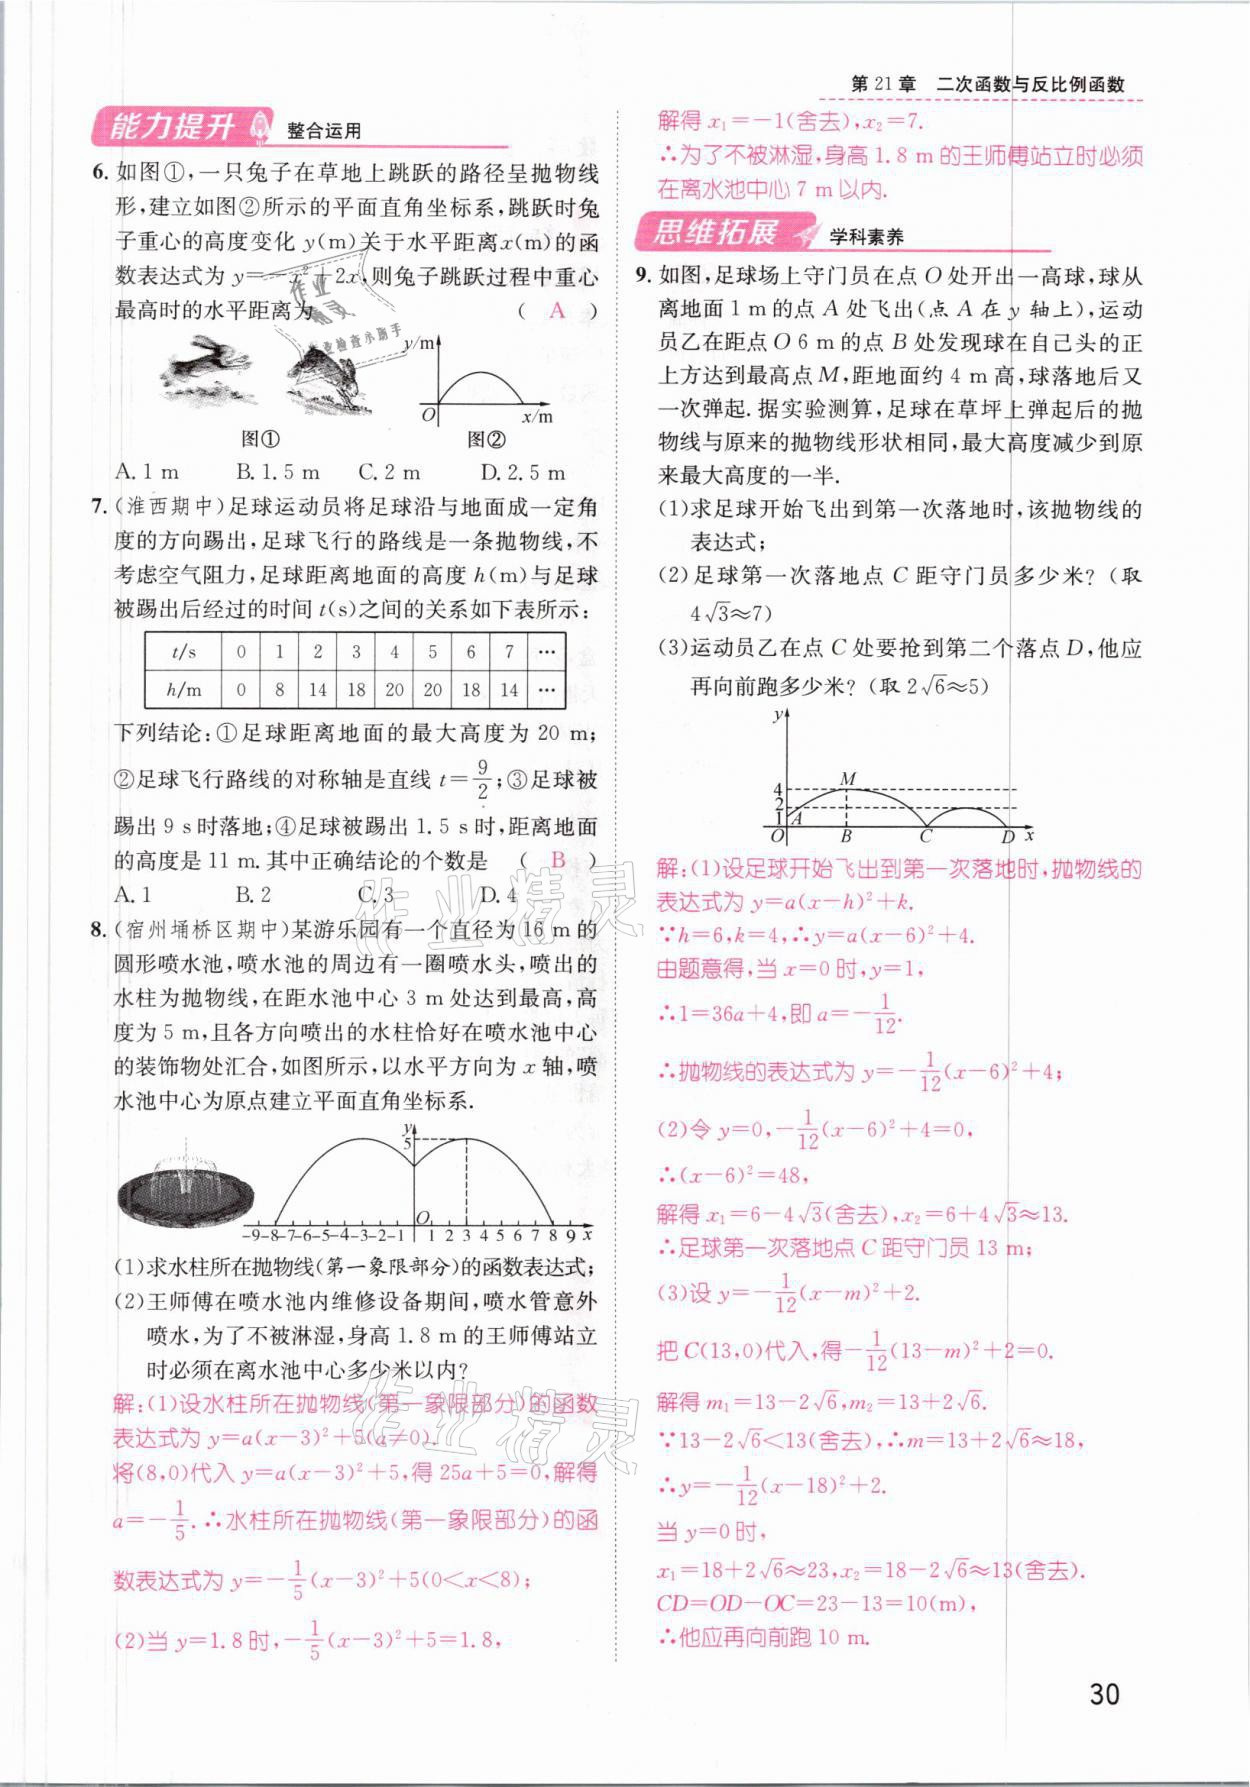 第 21 章　二次函数与反比例函数
能力提升 整合运用
6. 如图①,一只兔子在草地上跳跃的路径呈抛物线
形,建立如图②所示的平面直角坐标系,跳跃时兔
子重心的高度变化 y(m)关于水平距离x(m)的函
数表达式为 y=-x²+2x,则兔子跳跃过程中重心
最高时的水平距离为 ( A )
y/m
O
x/m
图① 图②
A. 1 m B. 1.5 m C. 2 m D. 2.5 m
7. (淮西期中)足球运动员将足球沿与地面成一定角
度的方向踢出,足球飞行的路线是一条抛物线,不
考虑空气阻力,足球距离地面的高度 h(m)与足球
被踢出后经过的时间 t(s)之间的关系如下表所示:
t/s 0 1 2 3 4 5 6 7 …
h/m 0 8 14 18 20 20 18 14 …
下列结论:①足球距离地面的最大高度为 20 m;
②足球飞行路线的对称轴是直线 t=9/2;③足球被
踢出 9 s时落地;④足球被踢出 1.5 s时,距离地面
的高度是 11 m.其中正确结论的个数是 ( B )
A. 1 B. 2 C. 3 D. 4
8. (宿州埇桥区期中)某游乐园有一个直径为 16 m 的
圆形喷水池,喷水池的周边有一圈喷水头,喷出的
水柱为抛物线,在距水池中心 3 m 处达到最高,高
度为 5 m,且各方向喷出的水柱恰好在喷水池中心
的装饰物处汇合,如图所示,以水平方向为 x 轴,喷
水池中心为原点建立平面直角坐标系.
y
5
O
-9-8-7-6-5-4-3-2-1 1 2 3 4 5 6 7 8 9 x
(1)求水柱所在抛物线(第一象限部分)的函数表达式;
(2)王师傅在喷水池内维修设备期间,喷水管意外
喷水,为了不被淋湿,身高 1.8 m 的王师傅站立
时必须在离水池中心多少米以内?
解:(1)设水柱所在抛物线(第一象限部分)的函数
表达式为 y=a(x-3)²+5(a≠0).
将(8,0)代入 y=a(x-3)²+5,得 25a+5=0,解得
a=-1/5.∴水柱所在抛物线(第一象限部分)的函
数表达式为 y=-1/5(x-3)²+5(0<x<8);
(2)当 y=1.8 时,-1/5(x-3)²+5=1.8,
解得 x₁=-1(舍去),x₂=7.
∴为了不被淋湿,身高 1.8 m 的王师傅站立时必须
在离水池中心 7 m 以内.
思维拓展 学科素养
9. 如图,足球场上守门员在点 O 处开出一高球,球从
离地面 1 m 的点 A 处飞出(点 A 在 y 轴上),运动
员乙在距点 O 6 m 的点 B 处发现球在自己头的正
上方达到最高点 M,距地面约 4 m 高,球落地后又
一次弹起.据实验测算,足球在草坪上弹起后的抛
物线与原来的抛物线形状相同,最大高度减少到原
来最大高度的一半.
(1)求足球开始飞出到第一次落地时,该抛物线的
表达式;
(2)足球第一次落地点 C 距守门员多少米?(取
4√3≈7)
(3)运动员乙在点 C 处要抢到第二个落点 D,他应
再向前跑多少米?(取 2√6≈5)
y
M
4
2
1 A
O B C D x
解:(1)设足球开始飞出到第一次落地时,抛物线的
表达式为 y=a(x-h)²+k.
∵h=6,k=4,∴y=a(x-6)²+4.
由题意得,当 x=0 时,y=1,
∴1=36a+4,即 a=-1/12.
∴抛物线的表达式为 y=-1/12(x-6)²+4;
(2)令 y=0,-1/12(x-6)²+4=0,
∴(x-6)²=48,
解得 x₁=6-4√3(舍去),x₂=6+4√3≈13.
∴足球第一次落地点 C 距守门员 13 m;
(3)设 y=-1/12(x-m)²+2.
把 C(13,0)代入,得-1/12(13-m)²+2=0.
解得 m₁=13-2√6,m₂=13+2√6.
∵13-2√6<13(舍去),∴m=13+2√6≈18,
∴y=-1/12(x-18)²+2.
当 y=0 时,
x₁=18+2√6≈23,x₂=18-2√6≈13(舍去).
CD=OD-OC=23-13=10(m),
∴他应再向前跑 10 m.
作业精灵
作业精灵
30